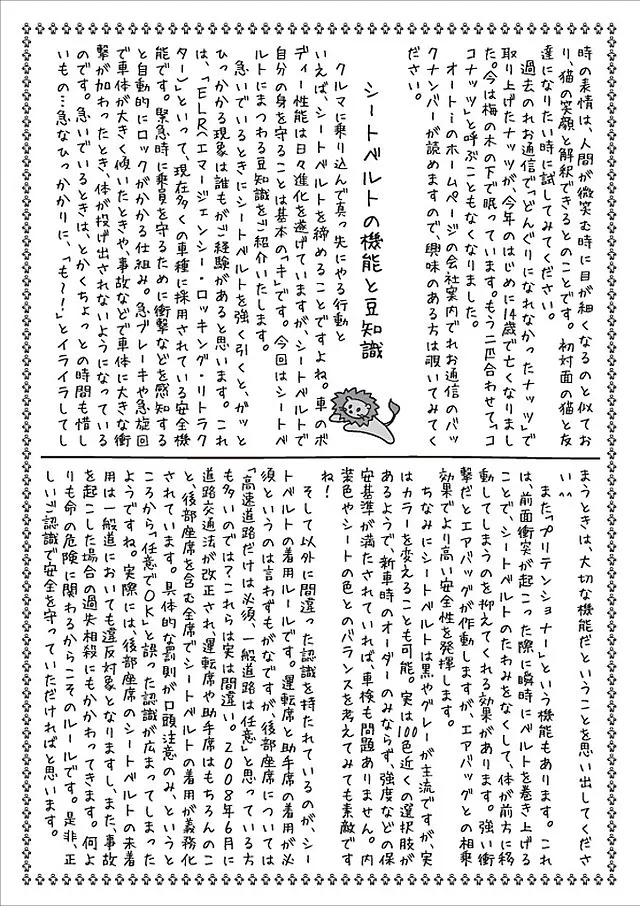 時の表情は、人間が微笑む時に目が細くなるのと似てお
り、猫の笑顔と解釈できるとのことです。初対面の猫と友
達になりたい時に試してみてください。
過去のれお通信で「どんぐりになれなかったナッツ」で
取り上げたナッツが、今年のはじめに14歳で亡くなりまし
た。今は梅の木の下で眠っています。もう二匹合わせて「コ
コナッツ」と呼ぶこともなくなりました。
オートiのホームページの会社案内でれお通信のバッ
クナンバーが読めますので、興味のある方は覗いてみてく
ださい。
シートベルトの機能と豆知識
クルマに乗り込んで真っ先にやる行動と
いえば、シートベルトを締めることですよね。車のボ
ディー性能は日々進化を遂げていますが、シートベルトで
自分の身を守ることは基本の「キ」です。今回はシートベ
ルトにまつわる豆知識をご紹介いたします。
急いでいるときにシートベルトを強く引くと、ガッと
ひっかかる現象は誰もがご経験があると思います。これ
は、「ELR(エマージェンシー・ロッキング・リトラク
ター)」といって、現在多くの車種に採用されている安全機
能です。緊急時に乗員を守るために衝撃などを感知する
と自動的にロックがかかる仕組み。急ブレーキや急旋回
で車体が大きく傾いたときや、事故などで車体に大きな衝
撃が加わったとき、体が投げ出されないようになっている
のです。急いでいるときは、とかくちょっとの時間も惜し
いもの…急なひっかかりに、「も～!」とイライラしてし
まうときは、大切な機能だということを思い出してくださ
い^^
また「プリテンショナー」という機能もあります。これ
は、前面衝突が起こった際に瞬時にベルトを巻き上げる
ことで、シートベルトのたわみをなくして、体が前方に移
動してしまうのを抑えてくれる効果があります。強い衝
撃だとエアバッグが作動しますが、エアバッグとの相乗
効果でより高い安全性を発揮します。
ちなみにシートベルトは黒やグレーが主流ですが、実
はカラーを変えることも可能。実は100色近くの選択肢が
あるようで、新車時のオーダーのみならず、強度などの保
安基準が満たされていれば、車検も問題ありません。内
装色やシートの色とのバランスを考えてみても素敵です
ね!
そして以外に間違った認識を持たれているのが、シー
トベルトの着用ルールです。運転席と助手席の着用が必
須というのは言わずもがなですが、後部座席については
「高速道路だけは必須、一般道路は任意」と思っている方
も多いのでは?これらは実は間違い。2008年6月に
道路交通法が改正され、運転席や助手席はもちろんのこ
と、後部座席を含む全席でシートベルトの着用が義務化
されています。具体的な罰則が口頭注意のみ、というと
ころから「任意でOK」と誤った認識が広まってしまった
ようですね。実際には、後部座席のシートベルトの未着
用は一般道においても違反対象となりますし、また、事故
を起こした場合の過失相殺にもかかわってきます。何よ
りも命の危険に関わるからこそのルールです。是非、正
しいご認識で安全を守っていただければと思います。